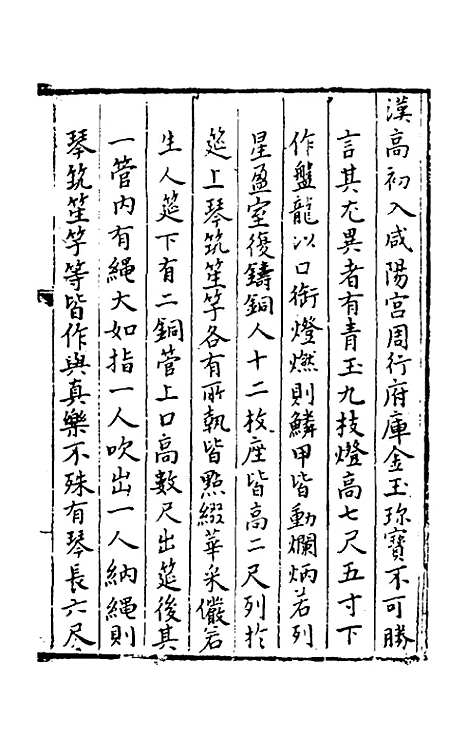 漢高初入咸陽宮周行府庫金玉珎寶不可勝
言其尤異者有青玉九枝燈高七尺五寸下
作盤龍以口銜燈燃則鱗甲皆動爛炳若列
星盈室復鑄銅人十二枚座皆高二尺列於
筵上琴筑笙竽各有所執皆點綴華采儼若
生人筵下有二銅管上口高數尺出筵後其
一管内有繩大如指一人吹出一人納繩則
琴筑笙竽等皆作與真樂不殊有琴長六尺